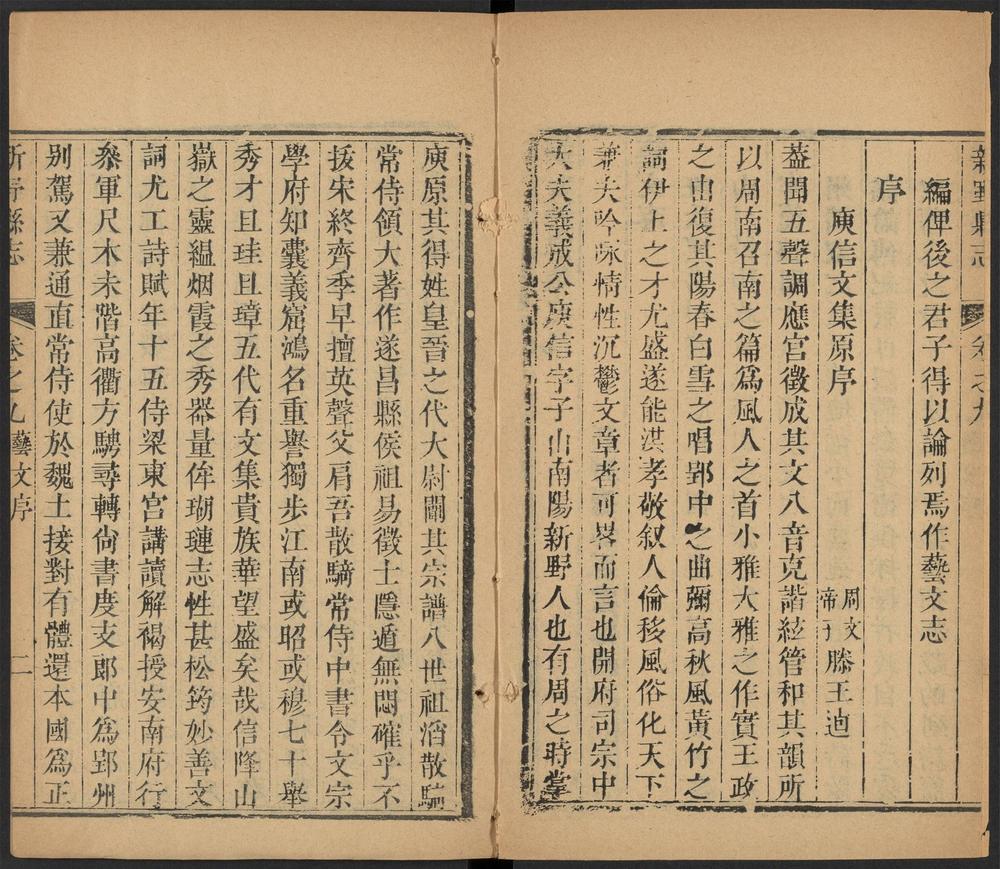 新野縣志 卷之九
編俾後之君子得以論列焉作藝文志
序
庾信文集原序 周文帝子 滕王逌
蓋聞五聲調應宮徵成其文八音克諧絃管和其韻所
以周南召南之篇爲風人之首小雅大雅之作實王政
之由復其陽春白雪之唱郢中之曲彌高秋風黃竹之
詞伊上之才尤盛遂能洪孝敬叙人倫移風俗化天下
兼夫吟咏情性沉鬱文章者可畧而言也開府司宗中
大夫義成公庾信字子山南陽新野人也有周之時掌
庾原其得姓皇晉之代大尉闡其宗譜八世祖滔散騎
常侍領大著作遂昌縣侯祖易徵士隱遁無悶確乎不
拔宋終齊季早擅英聲父肩吾散騎常侍中書令文宗
學府知囊義窟鴻名重譽獨步江南或昭或穆七十舉
秀才且珪且璋五代有文集貴族華望盛矣哉信降山
嶽之靈縕烟霞之秀器量侔瑚璉志性甚松筠妙善文
詞尤工詩賦年十五侍梁東宮講讀解褐授安南府行
叅軍尺木未階高衢方騁尋轉尙書度支郞中爲郢州
别駕又兼通直常侍使於魏土接對有體還本國爲正
新野縣志 卷之九 藝文序 二